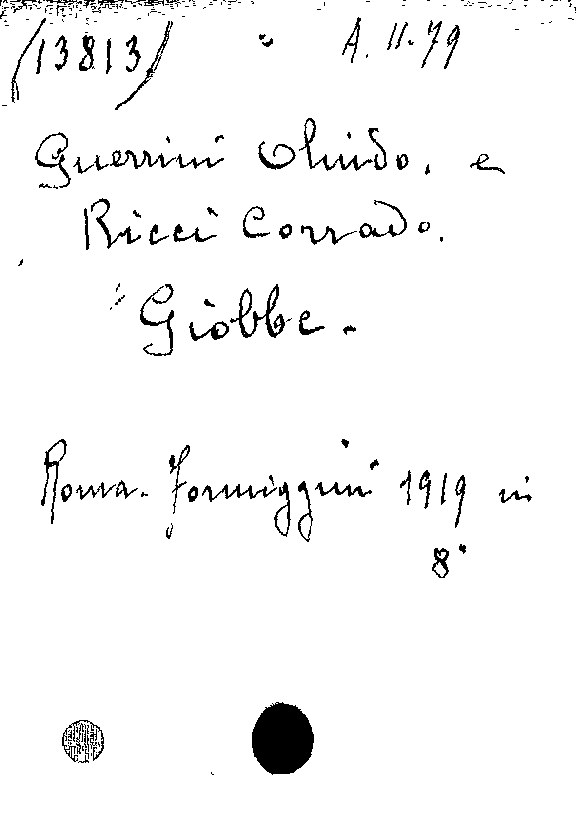 (13813) A. 11. 79
Guerrini Olindo. e
Ricci Corrado.
Giobbe.
Roma. Formiggini 1919 in
8°